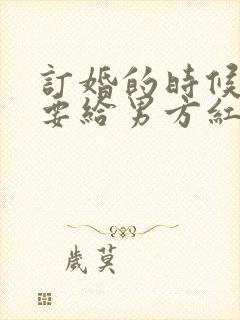 訂婚的時候
要給男方紅
歲莫